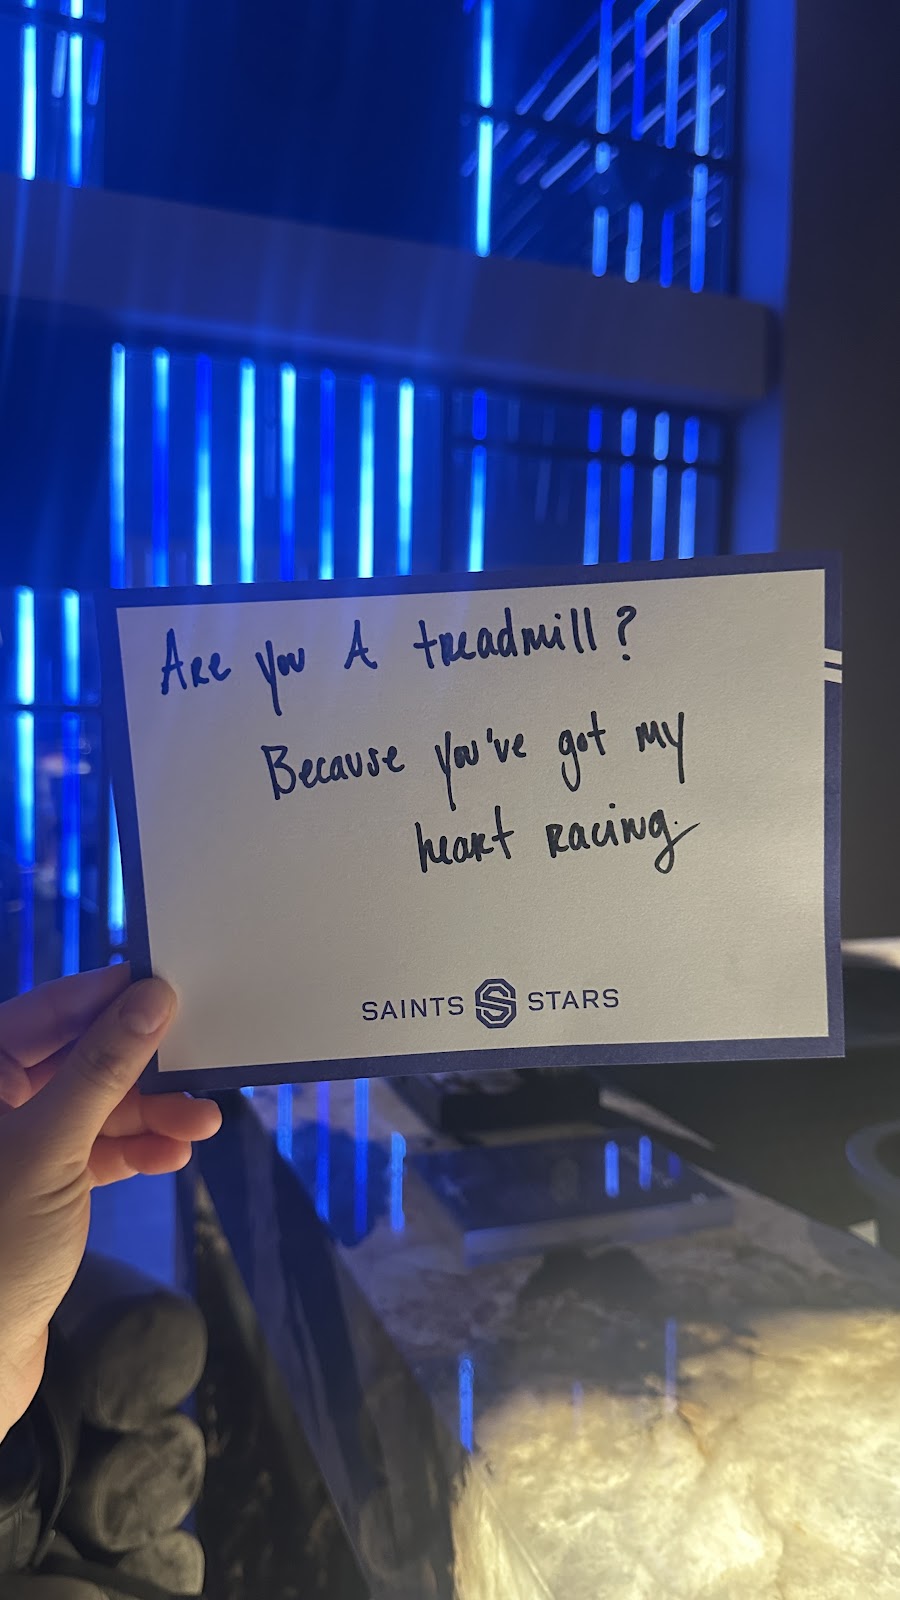 Are you A treadmill?
Because you've got my
heart racing.
SAINTS S STARS